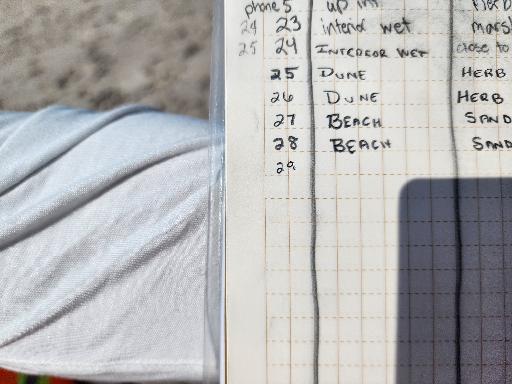 phone 5 up int herb
24 23 interid wet mars
25 24 INTERIOR WET close to
25 DUNE HERB
26 DUNE HERB
27 BEACH SAND
28 BEACH SAND
29